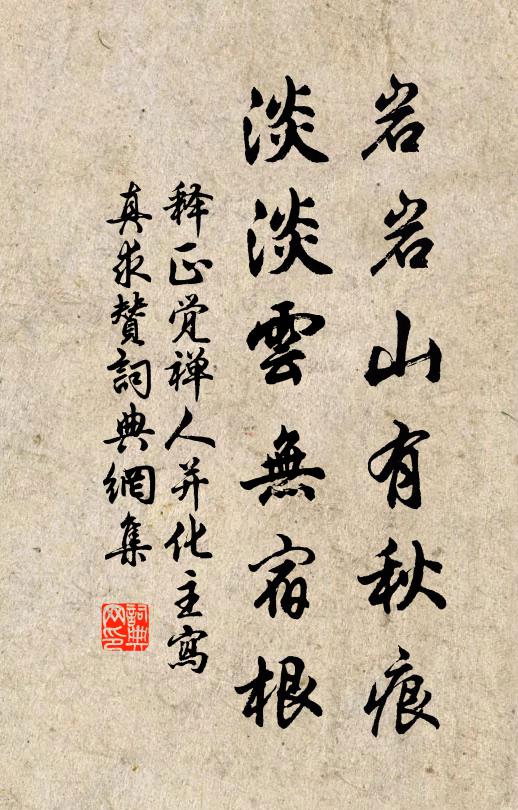 岩岩山有秋痕
淡淡雲無宿根
释正觉禅人并化主寫
真求贊詞典網集
詞典
网印